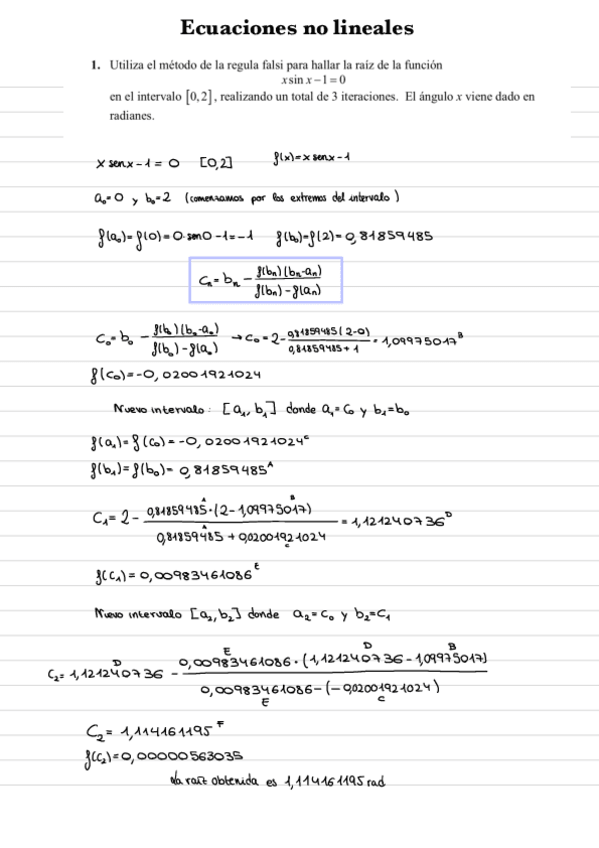 Ecuaciones no lineales
1. Utiliza el método de la regula falsi para hallar la raíz de la función
x sin x − 1 = 0
en el intervalo [0,2], realizando un total de 3 iteraciones. El ángulo x viene dado en
radianes.
x senx − 1 = 0 [0,2] f(x) = x senx − 1
a₀=0 y b₀=2 (comenzamos por los extremos del intervalo)
f(a₀)=f(0)=0·sen0−1=−1 f(b₀)=f(2)=0,81859485
cₙ = bₙ − f(bₙ)(bₙ−aₙ) / f(bₙ)−f(aₙ)
c₀=b₀ − f(b₀)(b₀−a₀) / f(b₀)−f(a₀) → c₀=2− 0,81859485(2−0) / 0,81859485+1 = 1,09975017ᴮ
f(c₀)=−0,02001921024
Nuevo intervalo: [a₁, b₁] donde a₁=c₀ y b₁=b₀
f(a₁)=f(c₀)=−0,02001921024ᶜ
f(b₁)=f(b₀)=0,81859485ᴬ
C₁= 2 − 0,81859485ᴬ·(2−1,09975017ᴮ) / 0,81859485ᴬ + 0,02001921024ᶜ = 1,121240736ᴰ
f(c₁)=0,00983461086ᴱ
Nuevo intervalo [a₂,b₂] donde a₂=c₀ y b₂=c₁
C₂=1,121240736ᴰ − 0,00983461086ᴱ·(1,121240736ᴰ−1,09975017ᴮ) / 0,00983461086ᴱ−(−0,02001921024ᶜ)
C₂= 1,114161195ᶠ
f(c₂)=0,00000563035
La raíz obtenida es 1,114161195 rad